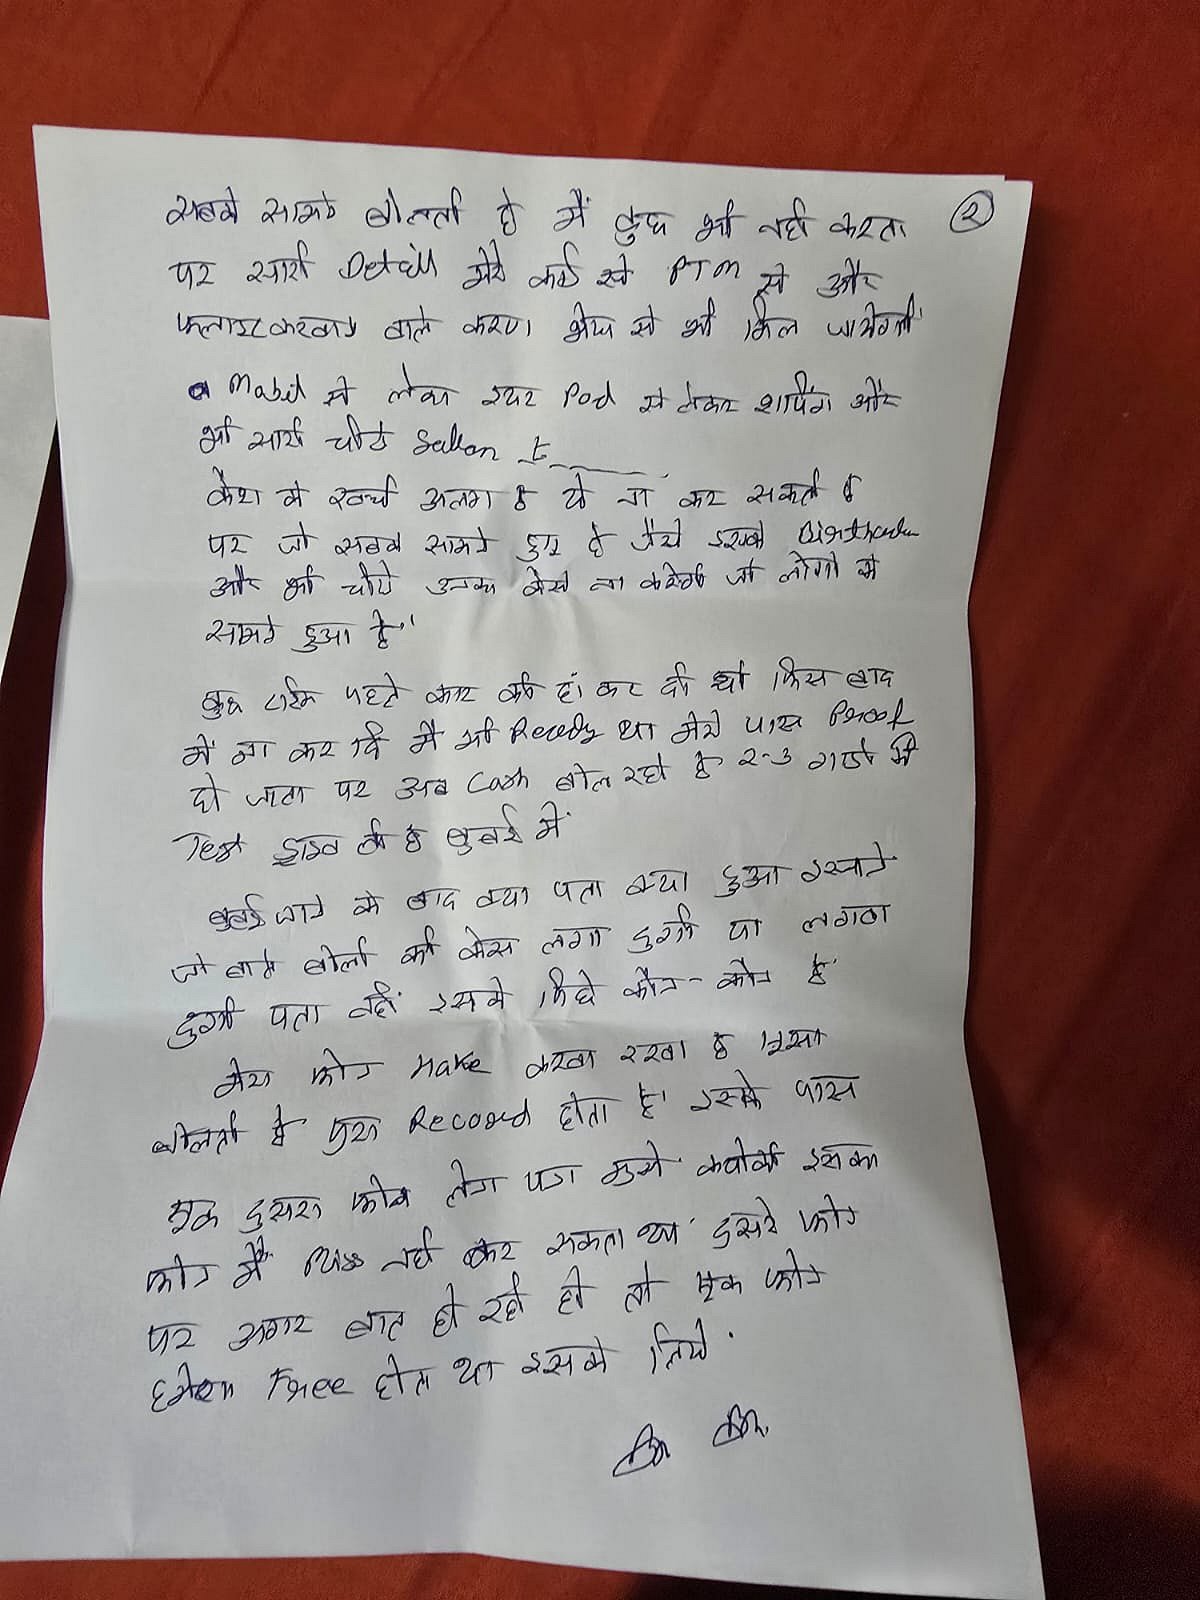 सबके सामने बोलती है मैं कुछ भी नहीं करता ②
पर सारी Detail मेरे कार्ड से PTM से और
वाले भी मिल जायेगी
से लेकर Pod से लेकर शापिंग और
भी सारी चीजे
कैश के खर्चे अलग है ये ना कर सकती है
पर जो सबके सामने हुए है जैसे इसके
और भी चीजे उनका कैसे ना करेगी जो लोगो के
सामने हुआ है"
कुछ टाईम पहले कार की हां कर दी थी फिर बाद
में ना कर दि मैं भी Ready था मेरे पास Proof
हो जाता पर अब Cash बोल रहे है 2-3 गाडी की
Test ड्राइव ली है में
जाने के बाद क्या पता क्या हुआ इसने
जो बाते बोली की केस लगा दुगी या लगवा
दुगी पता नहीं इसके पिछे कौन-कौन है
मेरा फोन Hake करवा रखा है
बोलती है पुरा Record होता है। इसके पास
एक दुसरा फोन लेना पडा मुझे क्योकी इसका
फोन मैं नहीं कर सकता था दुसरे फोन
पर अगर बात हो रही हो तो एक फोन
Free होता था इसके लिये.